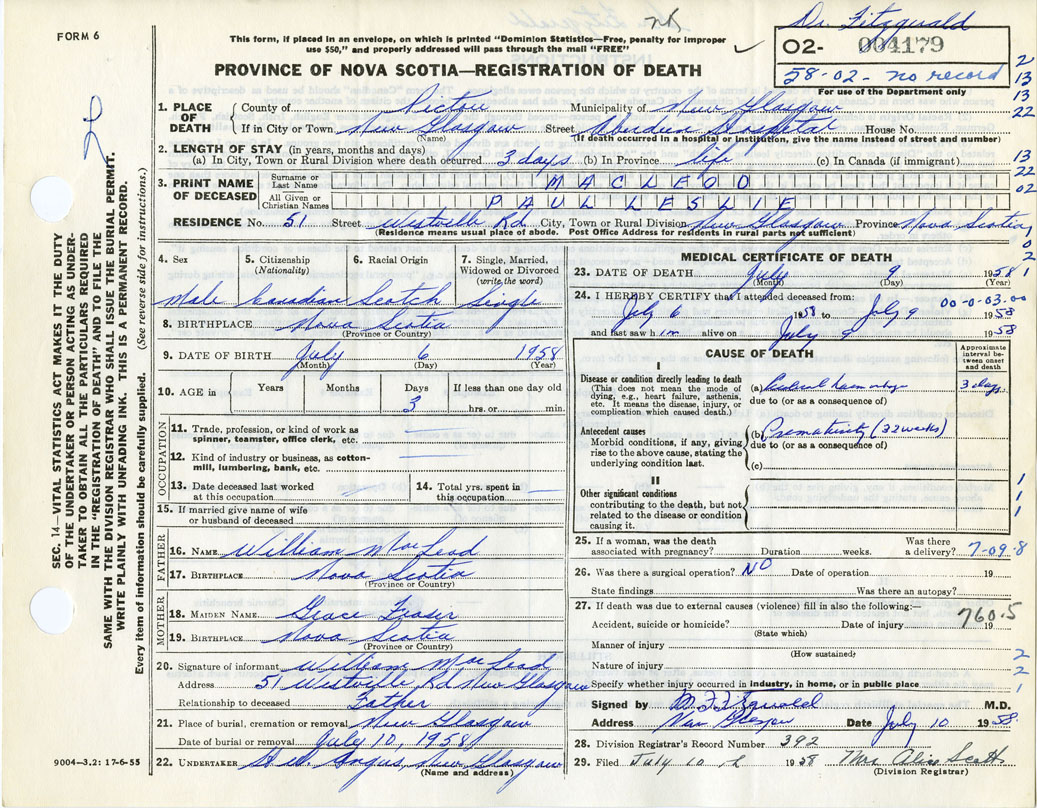 FORM 6
This form, if placed in an envelope, on which is printed "Dominion Statistics—Free, penalty for improper
use $50," and properly addressed will pass through the mail "FREE"
PROVINCE OF NOVA SCOTIA—REGISTRATION OF DEATH
Dr. Fitzgerald
02- 004179
58-02- no record
For use of the Department only
20
SEC. 14—VITAL STATISTICS ACT MAKES IT THE DUTY
OF THE UNDERTAKER OR PERSON ACTING AS UNDER-
TAKER TO OBTAIN ALL THE PARTICULARS REQUIRED
IN THE "REGISTRATION OF DEATH" AND TO FILE THE
SAME WITH THE DIVISION REGISTRAR WHO SHALL ISSUE THE BURIAL PERMIT.
WRITE PLAINLY WITH UNFADING INK. THIS IS A PERMANENT RECORD.
Every item of information should be carefully supplied. (See reverse side for instructions.)
1. PLACE OF DEATH
County of Pictou Municipality of New Glasgow
If in City or Town New Glasgow Street Aberdeen Hospital House No.
(Name) (If death occurred in a hospital or institution, give the name instead of street and number)
2. LENGTH OF STAY (in years, months and days)
(a) In City, Town or Rural Division where death occurred 3 days (b) In Province life (c) In Canada (if immigrant)
3. PRINT NAME OF DECEASED
Surname or Last Name MACLEOD
All Given or Christian Names PAUL LESLIE
RESIDENCE No. 51 Street Westville Rd City, Town or Rural Division New Glasgow Province Nova Scotia
(Residence means usual place of abode. Post Office Address for residents in rural parts not sufficient)
2
13
13
22
13
22
02
1
0
2
4. Sex
Male
5. Citizenship (Nationality)
Canadian
6. Racial Origin
Scotch
7. Single, Married, Widowed or Divorced (write the word)
Single
8. BIRTHPLACE Nova Scotia
(Province or Country)
9. DATE OF BIRTH July 6 1958
(Month) (Day) (Year)
10. AGE in Years Months Days 3 If less than one day old
hrs. or min.
OCCUPATION
11. Trade, profession, or kind of work as
spinner, teamster, office clerk, etc.
12. Kind of industry or business, as cotton-
mill, lumbering, bank, etc.
13. Date deceased last worked at this occupation
14. Total yrs. spent in this occupation
15. If married give name of wife
or husband of deceased
FATHER
16. NAME William MacLeod
17. BIRTHPLACE Nova Scotia
(Province or Country)
MOTHER
18. MAIDEN NAME Grace Fraser
19. BIRTHPLACE Nova Scotia
(Province or Country)
20. Signature of informant William MacLeod
Address 51 Westville Rd New Glasgow
Relationship to deceased Father
21. Place of burial, cremation or removal New Glasgow
Date of burial or removal July 10, 1958
22. UNDERTAKER Angus, New Glasgow
(Name and address)
9004—3.2: 17-6-55
MEDICAL CERTIFICATE OF DEATH
23. DATE OF DEATH July 9 1958
(Month) (Day) (Year)
1
24. I HEREBY CERTIFY that I attended deceased from: 00-0-03.00
July 6 1958 to July 9 1958
and last saw him alive on July 9 1958
CAUSE OF DEATH
Approximate interval between onset and death
I
Disease or condition directly leading to death
(This does not mean the mode of
dying, e.g., heart failure, asthenia,
etc. It means the disease, injury, or
complication which caused death.)
(a) Cerebral haemorrhage 3 days
due to (or as a consequence of)
Antecedent causes
Morbid conditions, if any, giving
rise to the above cause, stating the
underlying condition last.
(b) Prematurity (32 weeks)
due to (or as a consequence of)
(c)
II
Other significant conditions
contributing to the death, but not
related to the disease or condition
causing it.
1
1
1
25. If a woman, was the death
associated with pregnancy? Duration weeks. Was there a delivery? 7-09-8
26. Was there a surgical operation? NO Date of operation 19
State findings Was there an autopsy?
27. If death was due to external causes (violence) fill in also the following:—
760.5
Accident, suicide or homicide? Date of injury 19
(State which)
Manner of injury
(How sustained)
Nature of injury
Specify whether injury occurred in industry, in home, or in public place
2
2
1
Signed by M.D.
Address New Glasgow Date July 10 1958
28. Division Registrar's Record Number 392
29. Filed July 10 1958 Mrs Alice Scott
(Division Registrar)